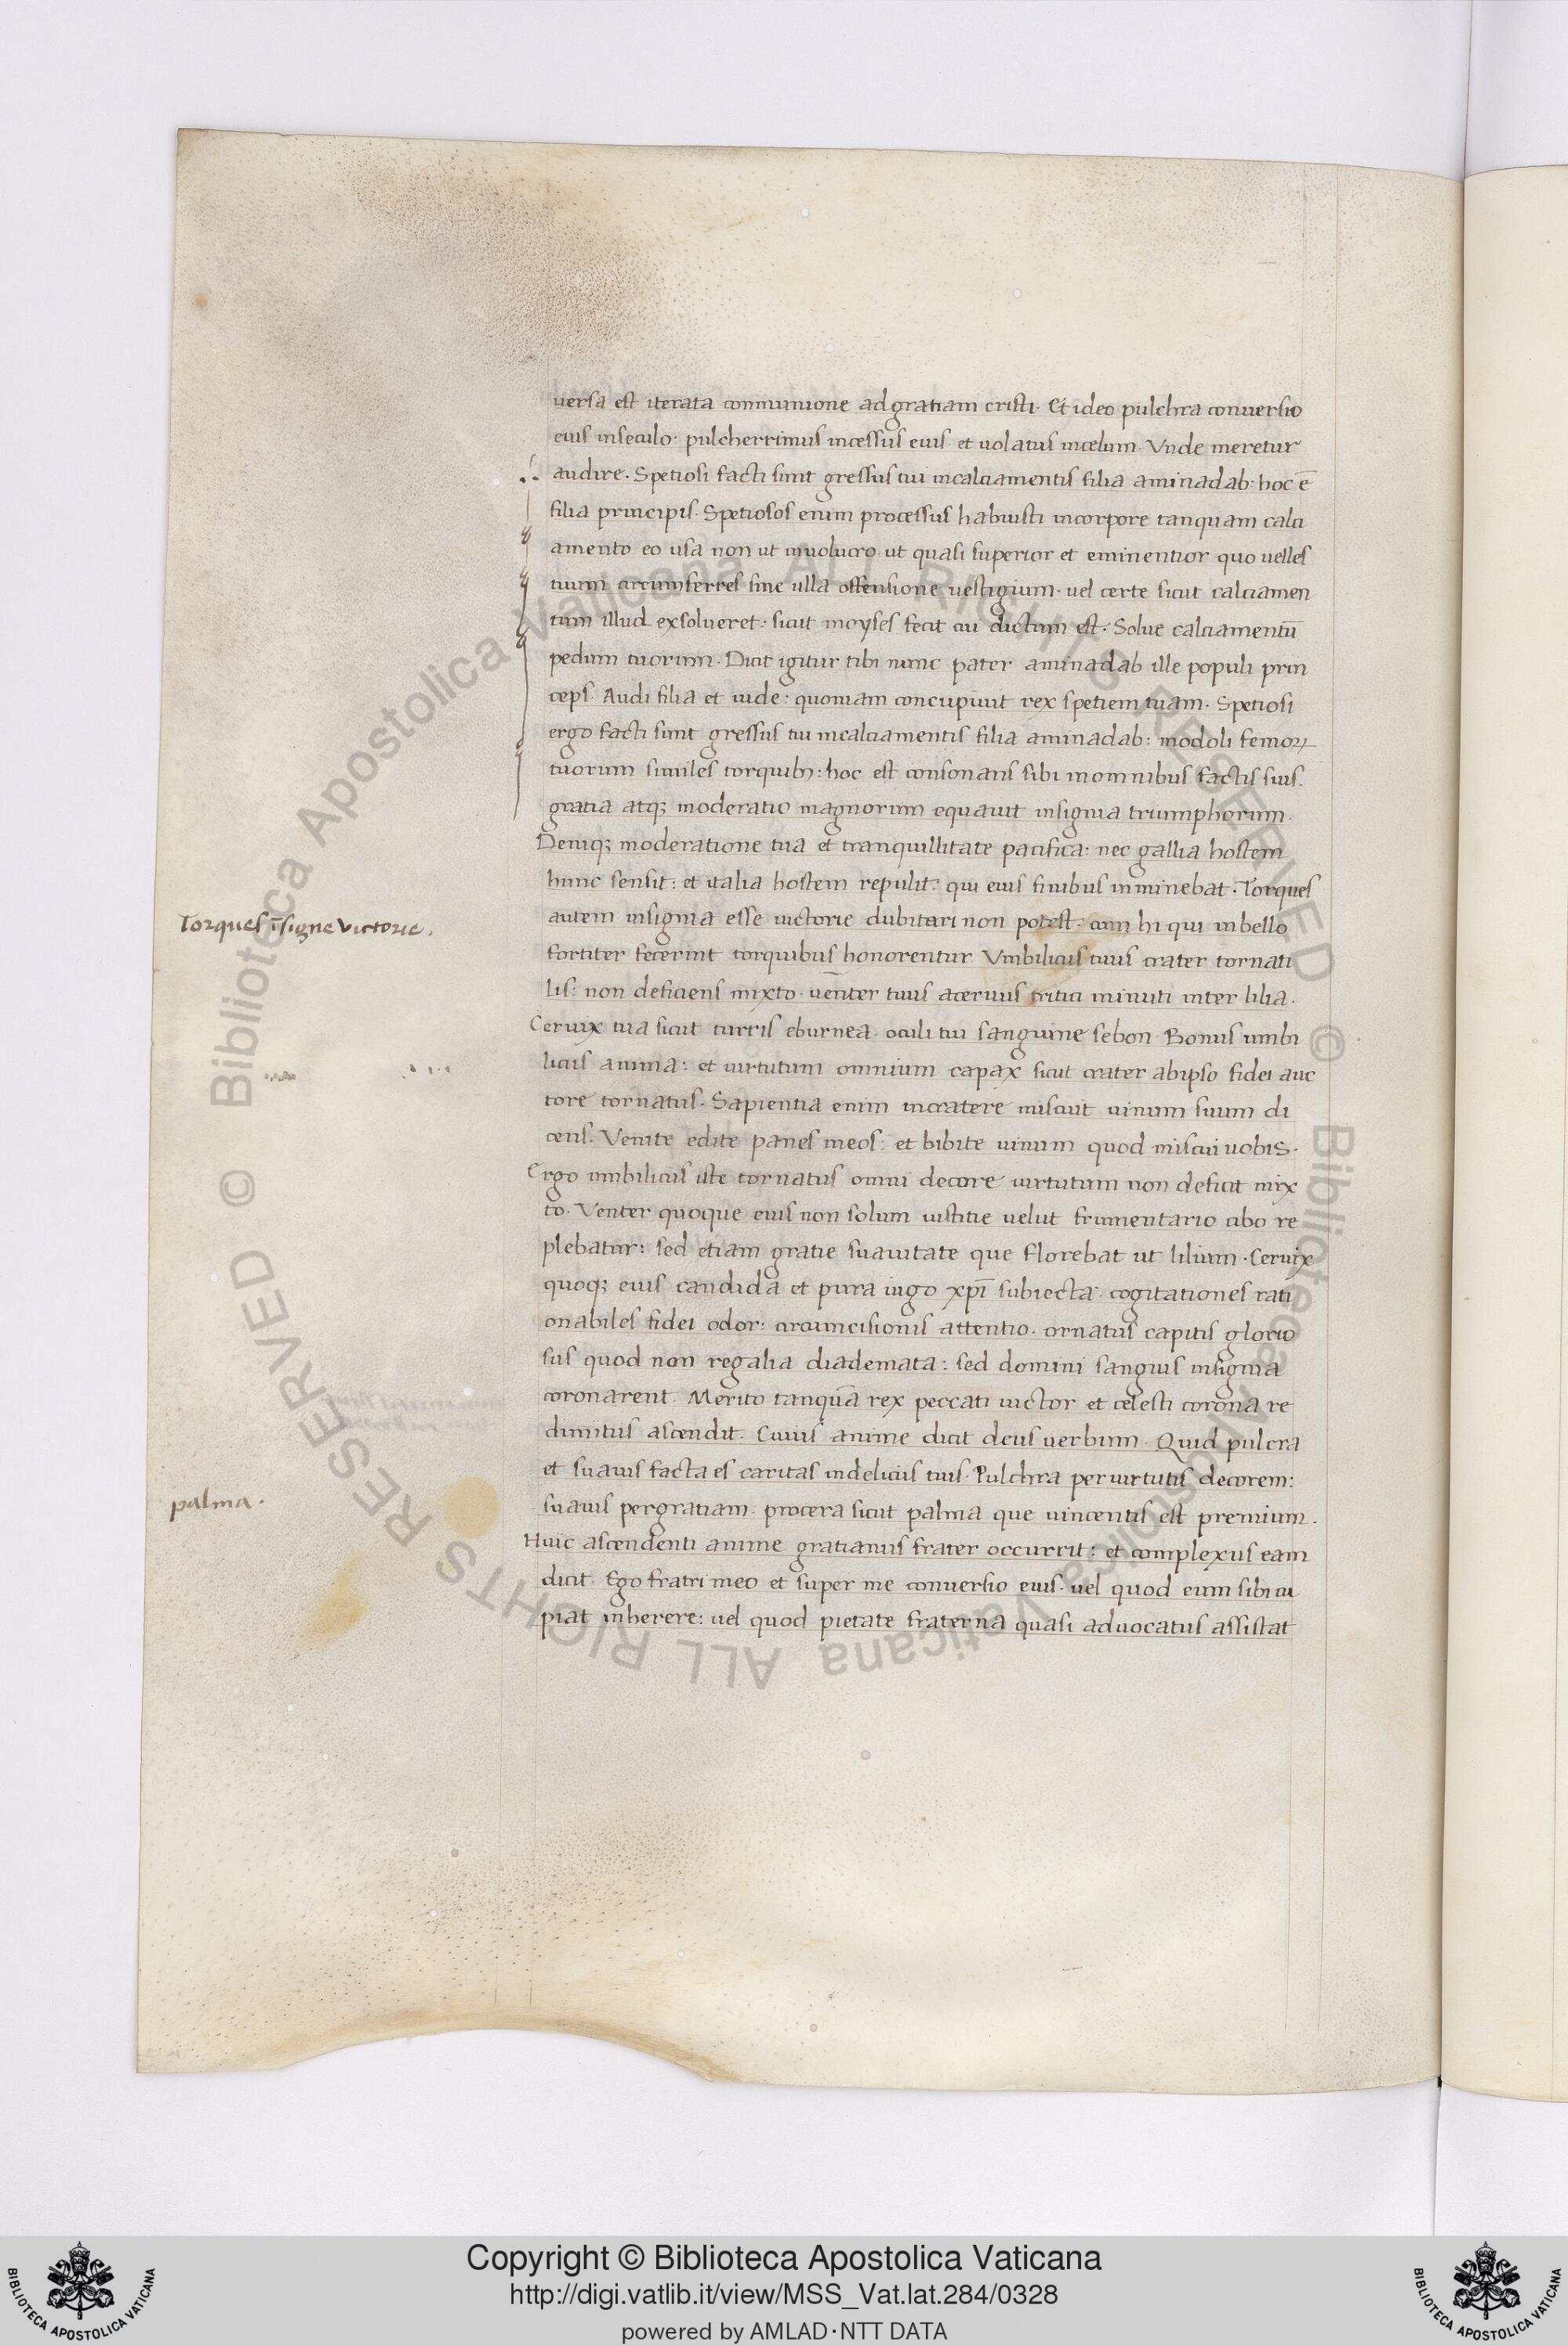 uersa est iterata communione ad gratiam cristi. Et ideo pulchra conuersio
eius in seculo: pulcherrimus incessus eius et uolatus in celum. Vnde meretur
audire. Spetiosi facti sunt gressus tui in calciamentis filia aminadab: hoc ē
filia principis. Spetiosos enim processus habuisti in corpore tanquam calci
amento eo usa non ut inuolucro ut quasi superior et eminentior quo uelles
tuum circumferres sine ulla offensione uestigium. uel certe sicut calciamen
tum illud exsolueret: sicut moyses fecit cui dictum est. Solue calciamentū
pedum tuorum. Dicit igitur tibi nunc pater aminadab ille populi prin
ceps. Audi filia et uide: quoniam concupiuit rex spetiem tuam. Spetiosi
ergo facti sunt gressus tui in calciamentis filia aminadab: modoli femoꝝ
tuorum similes torquibꝫ: hoc est consonans sibi in omnibus factis suis.
gratia atqꝫ moderatio magnorum equauit insignia triumphorum.
Deniqꝫ moderatione tua et tranquillitate pacifica: nec gallia hostem
hunc sensit: et italia hostem repulit: qui eius finibus inminebat. Torques
Torques īsigne victorie.
autem insignia esse uictorie dubitari non potest: cum hi qui in bello
fortiter fecerint torquibus honorentur. Vmbilicus tuus crater tornati
lis: non deficiens mixto. uenter tuus aceruus tritici minuti inter lilia.
Ceruix tua sicut turris eburnea. oculi tui sanguine sebon. Bonus umbi
licus anima: et uirtutum omnium capax sicut crater ab ipso fidei auc
tore tornatus. Sapientia enim in cratere miscuit uinum suum di
cens. Venite edite panes meos: et bibite uinum quod miscui uobis.
Ergo umbilicus iste tornatus omni decore uirtutum non deficit mix
to. Venter quoque eius non solum iustitie uelut frumentario cibo re
plebatur: sed etiam gratie suauitate que florebat ut lilium. Ceruix
quoqꝫ eius candida et pura iugo xp̄i subiecta. cogitationes rati
onabiles fidei odor: circumcisionis attentio. ornatus capitis glorio
sus quod non regalia diademata: sed domini sanguis insignia
coronarent. Merito tanquā rex peccati uictor et celesti corona re
dimitus ascendit. Cuius anime dicit deus uerbum. Quid pulcra
et suauis facta es caritas in deliciis tuis. Pulchra per uirtutis decorem:
palma.
suauis per gratiam. procera sicut palma que uincentis est premium.
Huic ascendenti anime gratianus frater occurrit: et complexus eam
dicit. Ego fratri meo et super me conuersio eius. uel quod eum sibi cu
piat inherere: uel quod pietate fraterna quasi aduocatus assistat
Copyright © Biblioteca Apostolica Vaticana
http://digi.vatlib.it/view/MSS_Vat.lat.284/0328
powered by AMLAD·NTT DATA
BIBLIOTECA APOSTOLICA VATICANA
BIBLIOTECA APOSTOLICA VATICANA
© Biblioteca Apostolica Vaticana ALL RIGHTS RESERVED
© Biblioteca Apostolica Vaticana ALL RIGHTS RESERVED